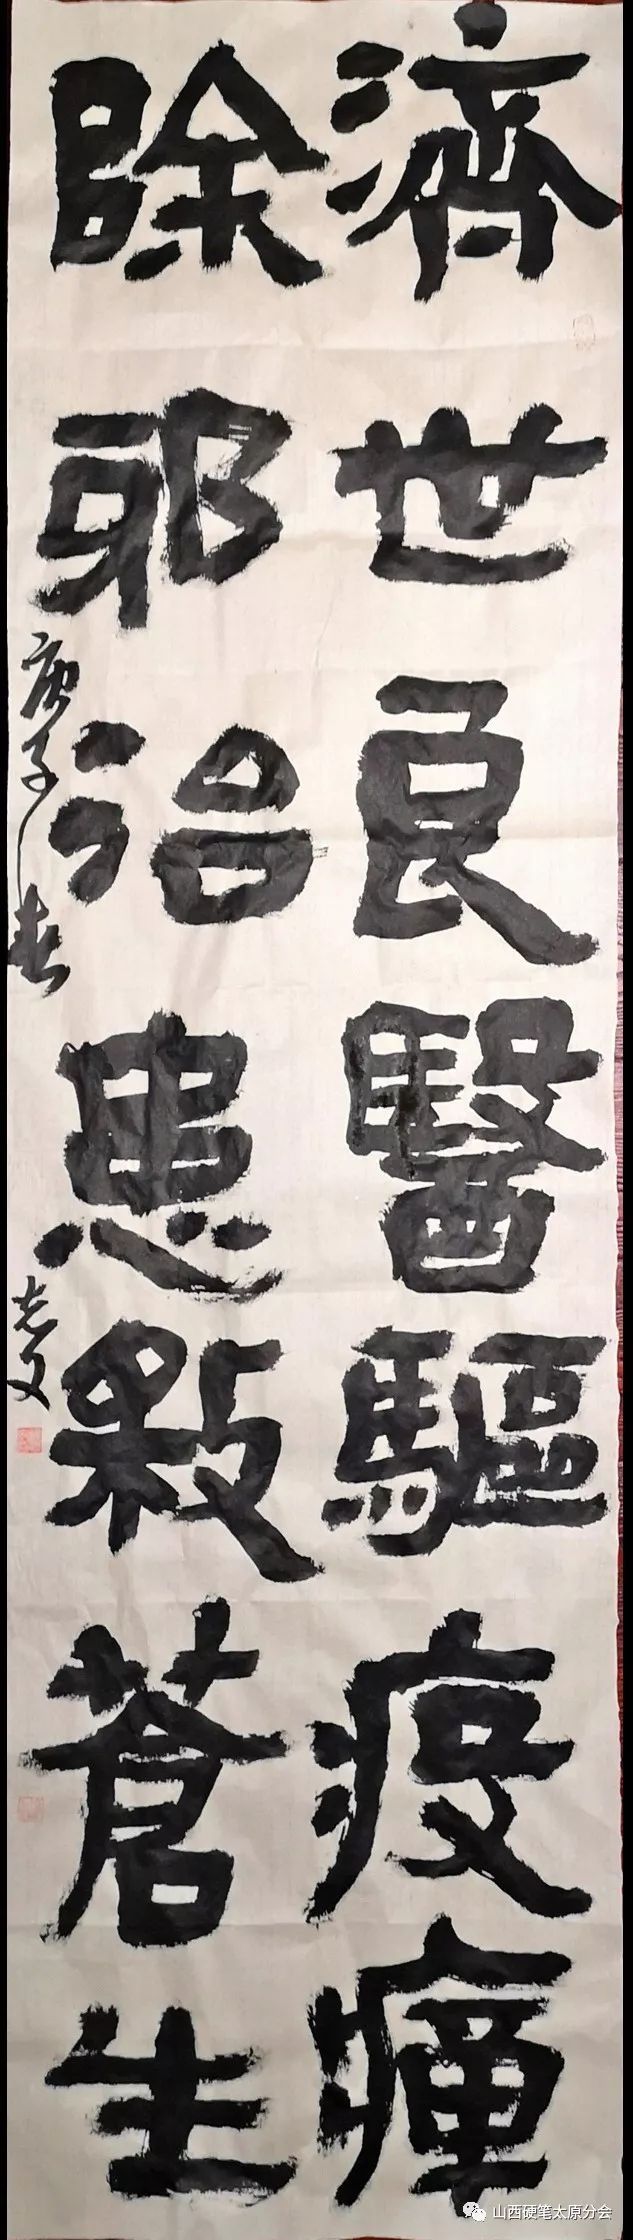 濟世良醫驅疫癉
除邪治患救蒼生
庚子春
志文
山西硬笔太原分会